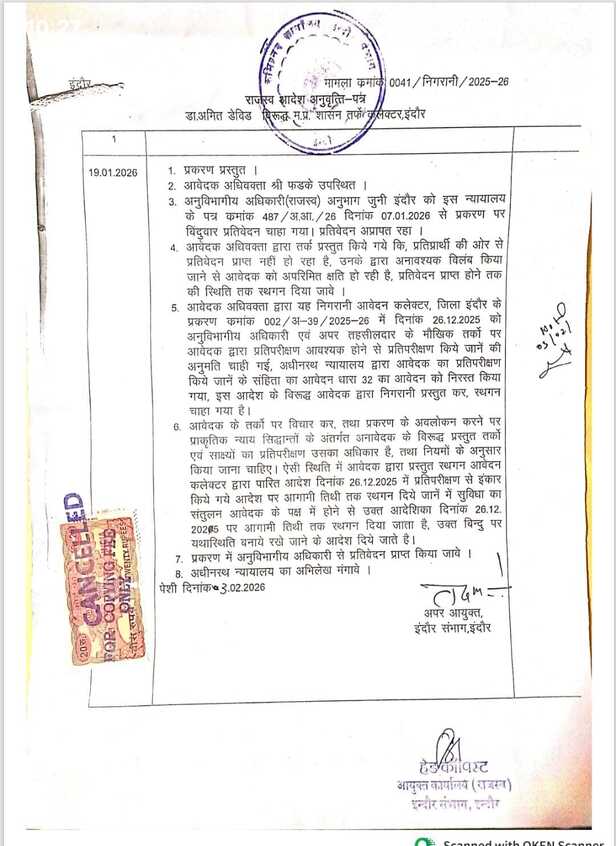 इंदौर
मामला क्रमांक 0041/निगरानी/2025-26
राजस्व आदेश अनुवृत्ति-पत्र
डा.अमित डेविड विरूद्ध म.प्र. शासन तर्फे कलेक्टर,इंदौर
1
19.01.2026
1. प्रकरण प्रस्तुत ।
2. आवेदक अधिवक्ता श्री फडके उपस्थित ।
3. अनुविभागीय अधिकारी(राजस्व) अनुभाग जुनी इंदौर को इस न्यायालय
के पत्र कमांक 487/अ.आ./26 दिनांक 07.01.2026 से प्रकरण पर
बिंदुवार प्रतिवेदन चाहा गया। प्रतिवेदन अप्राप्त रहा ।
4. आवेदक अधिवक्ता द्वारा तर्क प्रस्तुत किये गये कि, प्रतिप्रार्थी की ओर से
प्रतिवेदन प्राप्त नहीं हो रहा है, उनके द्वारा अनावश्यक विलंब किया
जाने से आवेदक को अपरिमित क्षति हो रही है, प्रतिवेदन प्राप्त होने तक
की स्थिति तक स्थगन दिया जावे ।
5. आवेदक अधिवक्ता द्वारा यह निगरानी आवेदन कलेक्टर, जिला इंदौर के
प्रकरण कमांक 002/अ-39/2025-26 में दिनांक 26.12.2025 को
अनुविभागीय अधिकारी एवं अपर तहसीलदार के मौखिक तर्को पर
आवेदक द्वारा प्रतिपरीक्षण आवश्यक होने से प्रतिपरीक्षण किये जानें की
अनुमति चाही गई, अधीनस्थ न्यायालय द्वारा आवेदक का प्रतिपरीक्षण
किये जानें के संहिता का आवेदन धारा 32 का आवेदन को निरस्त किया
गया, इस आदेश के विरूद्ध आवेदक द्वारा निगरानी प्रस्तुत कर, स्थगन
चाहा गया है।
6. आवेदक के तर्कों पर विचार कर, तथा प्रकरण के अवलोकन करने पर
प्राकृतिक न्याय सिद्धान्तों के अंतर्गत अनावेदक के विरूद्ध प्रस्तुत तर्को
एवं साक्ष्यों का प्रतिपरीक्षण उसका अधिकार है, तथा नियमों के अनुसार
किया जाना चाहिए। ऐसी स्थिति में आवेदक द्वारा प्रस्तुत स्थगन आवेदन
कलेक्टर द्वारा पारित आदेश दिनांक 26.12.2025 में प्रतिपरीक्षण से इंकार
किये गये आदेश पर आगामी तिथी तक स्थगन दिये जानें में सुविधा का
संतुलन आवेदक के पक्ष में होने से उक्त आदेशिका दिनांक 26.12.
2025 पर आगामी तिथी तक स्थगन दिया जाता है, उक्त बिन्दु पर
यथास्थिति बनाये रखे जाने के आदेश दिये जाते है।
7. प्रकरण में अनुविभागीय अधिकारी से प्रतिवेदन प्राप्त किया जावे ।
8. अधीनस्थ न्यायालय का अभिलेख मंगावे ।
पेशी दिनांक 3.02.2026
अपर आयुक्त,
इंदौर संभाग,इंदौर
CANCELLED
FOR COPYING FEE
ONLY
TWENTY RUPEES
बीस रुपये
20रु
हैड कॉपिस्ट
आयुक्त कार्यालय (राजस्व)
इन्दौर संभाग, इन्दौर
Scanned with OKEN Scanner